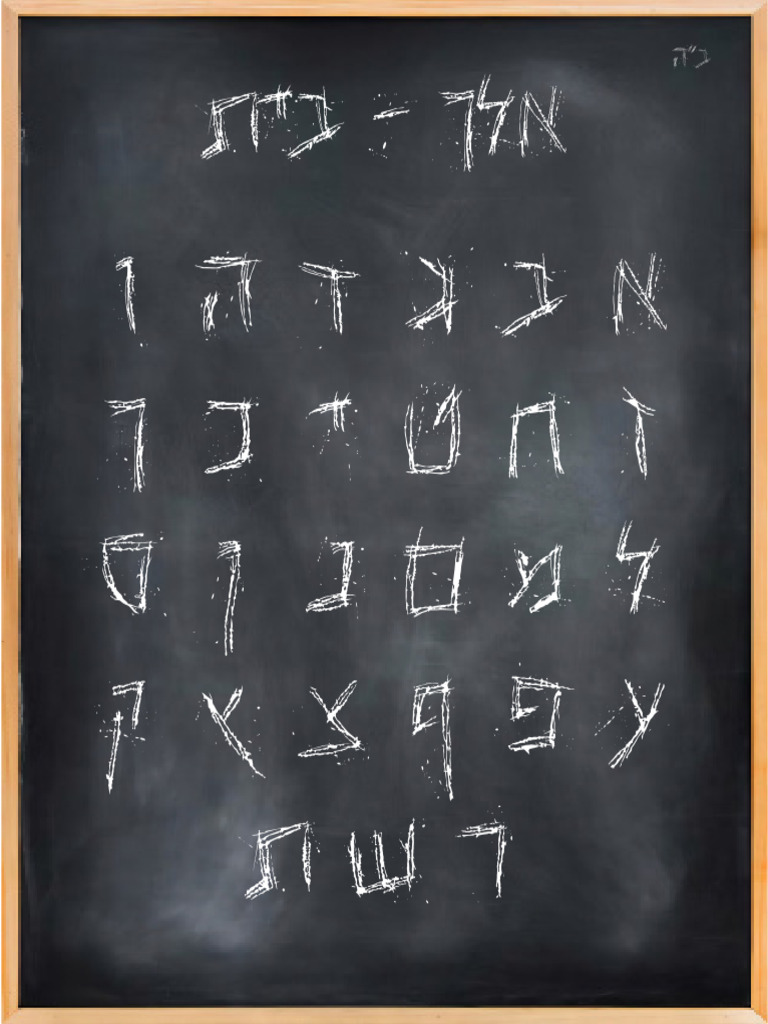 ב"ה
אלך - בית
א ב ג ד ה ו
ז ח ט י כ ך
ל מ ם נ ן ס
ע פ ף צ ץ ק
ר ש ת